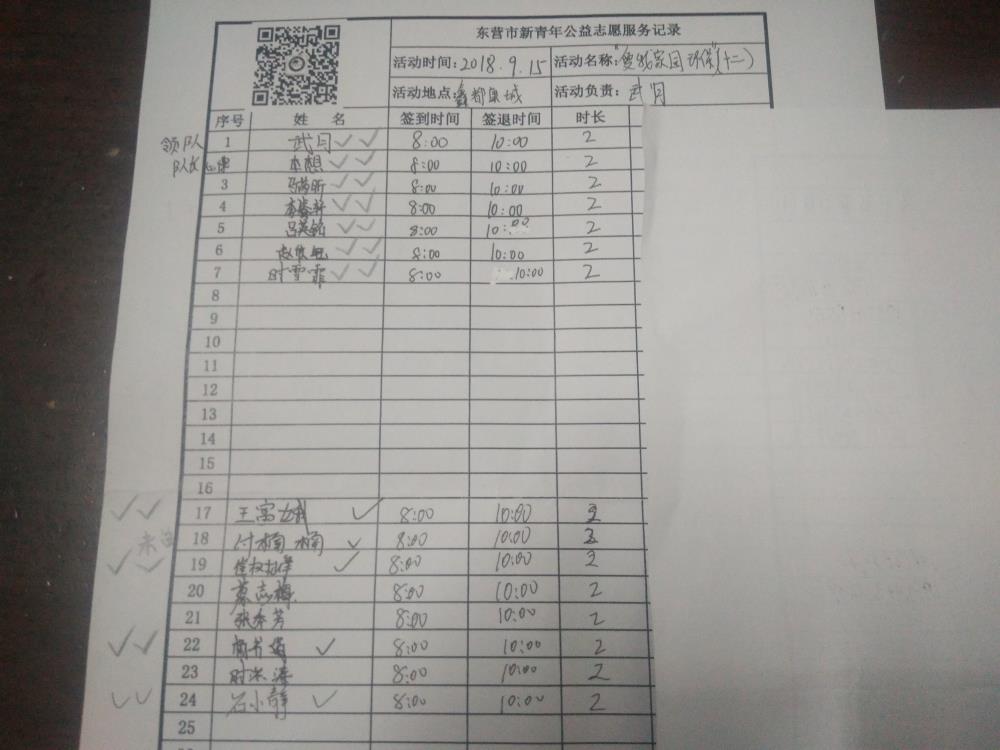 东营市新青年公益志愿服务记录
活动时间:2018.9.15 活动名称:"爱我家园 环保"(十二)
活动地点:都城 活动负责:武月
序号 姓 名 签到时间 签退时间 时长
领队 1 武月 8:00 10:00 2
队长 李想 8:00 10:00 2
3 8:00 10:00 2
4 8:00 10:00 2
5 吕英铭 8:00 10:00 2
6 8:00 10:00 2
7 时雪霏 8:00 10:00 2
8
9
10
11
12
13
14
15
16
17 王富娥 8:00 10:00 2
18 付楠楠 8:00 10:00 2
19 8:00 10:00 2
20 蔡志梅 8:00 10:00 2
21 张秀芳 8:00 10:00 2
22 8:00 10:00 2
23 8:00 10:00 2
24 石小静 8:00 10:00 2
25